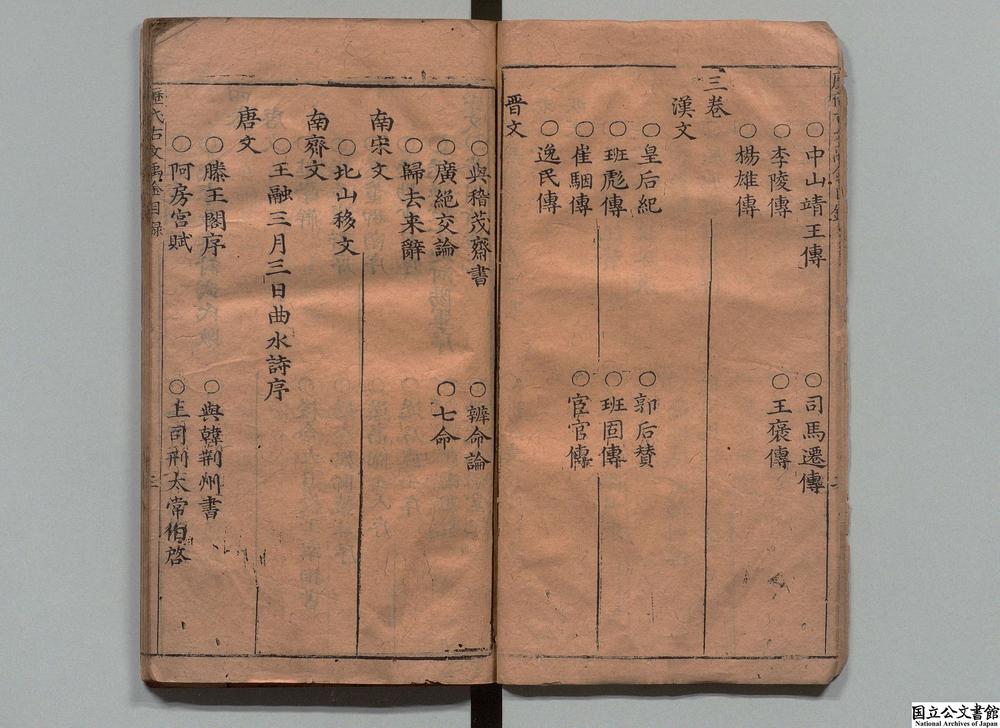 ○中山靖王傳　○司馬遷傳
○李陵傳　○王褒傳
○楊雄傳
三卷
漢文
○皇后紀　○郭后賛
○班彪傳　○班固傳
○崔駰傳　○宦官傳
○逸民傳
晋文
○與稽茂齋書　○辨命論
○廣絶交論　○七命
○歸去来辭
南宋文
○北山移文
南齊文
○王融三月三日曲水詩序
唐文
○滕王閣序　○與韓荆州書
○阿房宮賦　○上司刑太常伯啓
目録　三
国立公文書館
National Archives of Japan